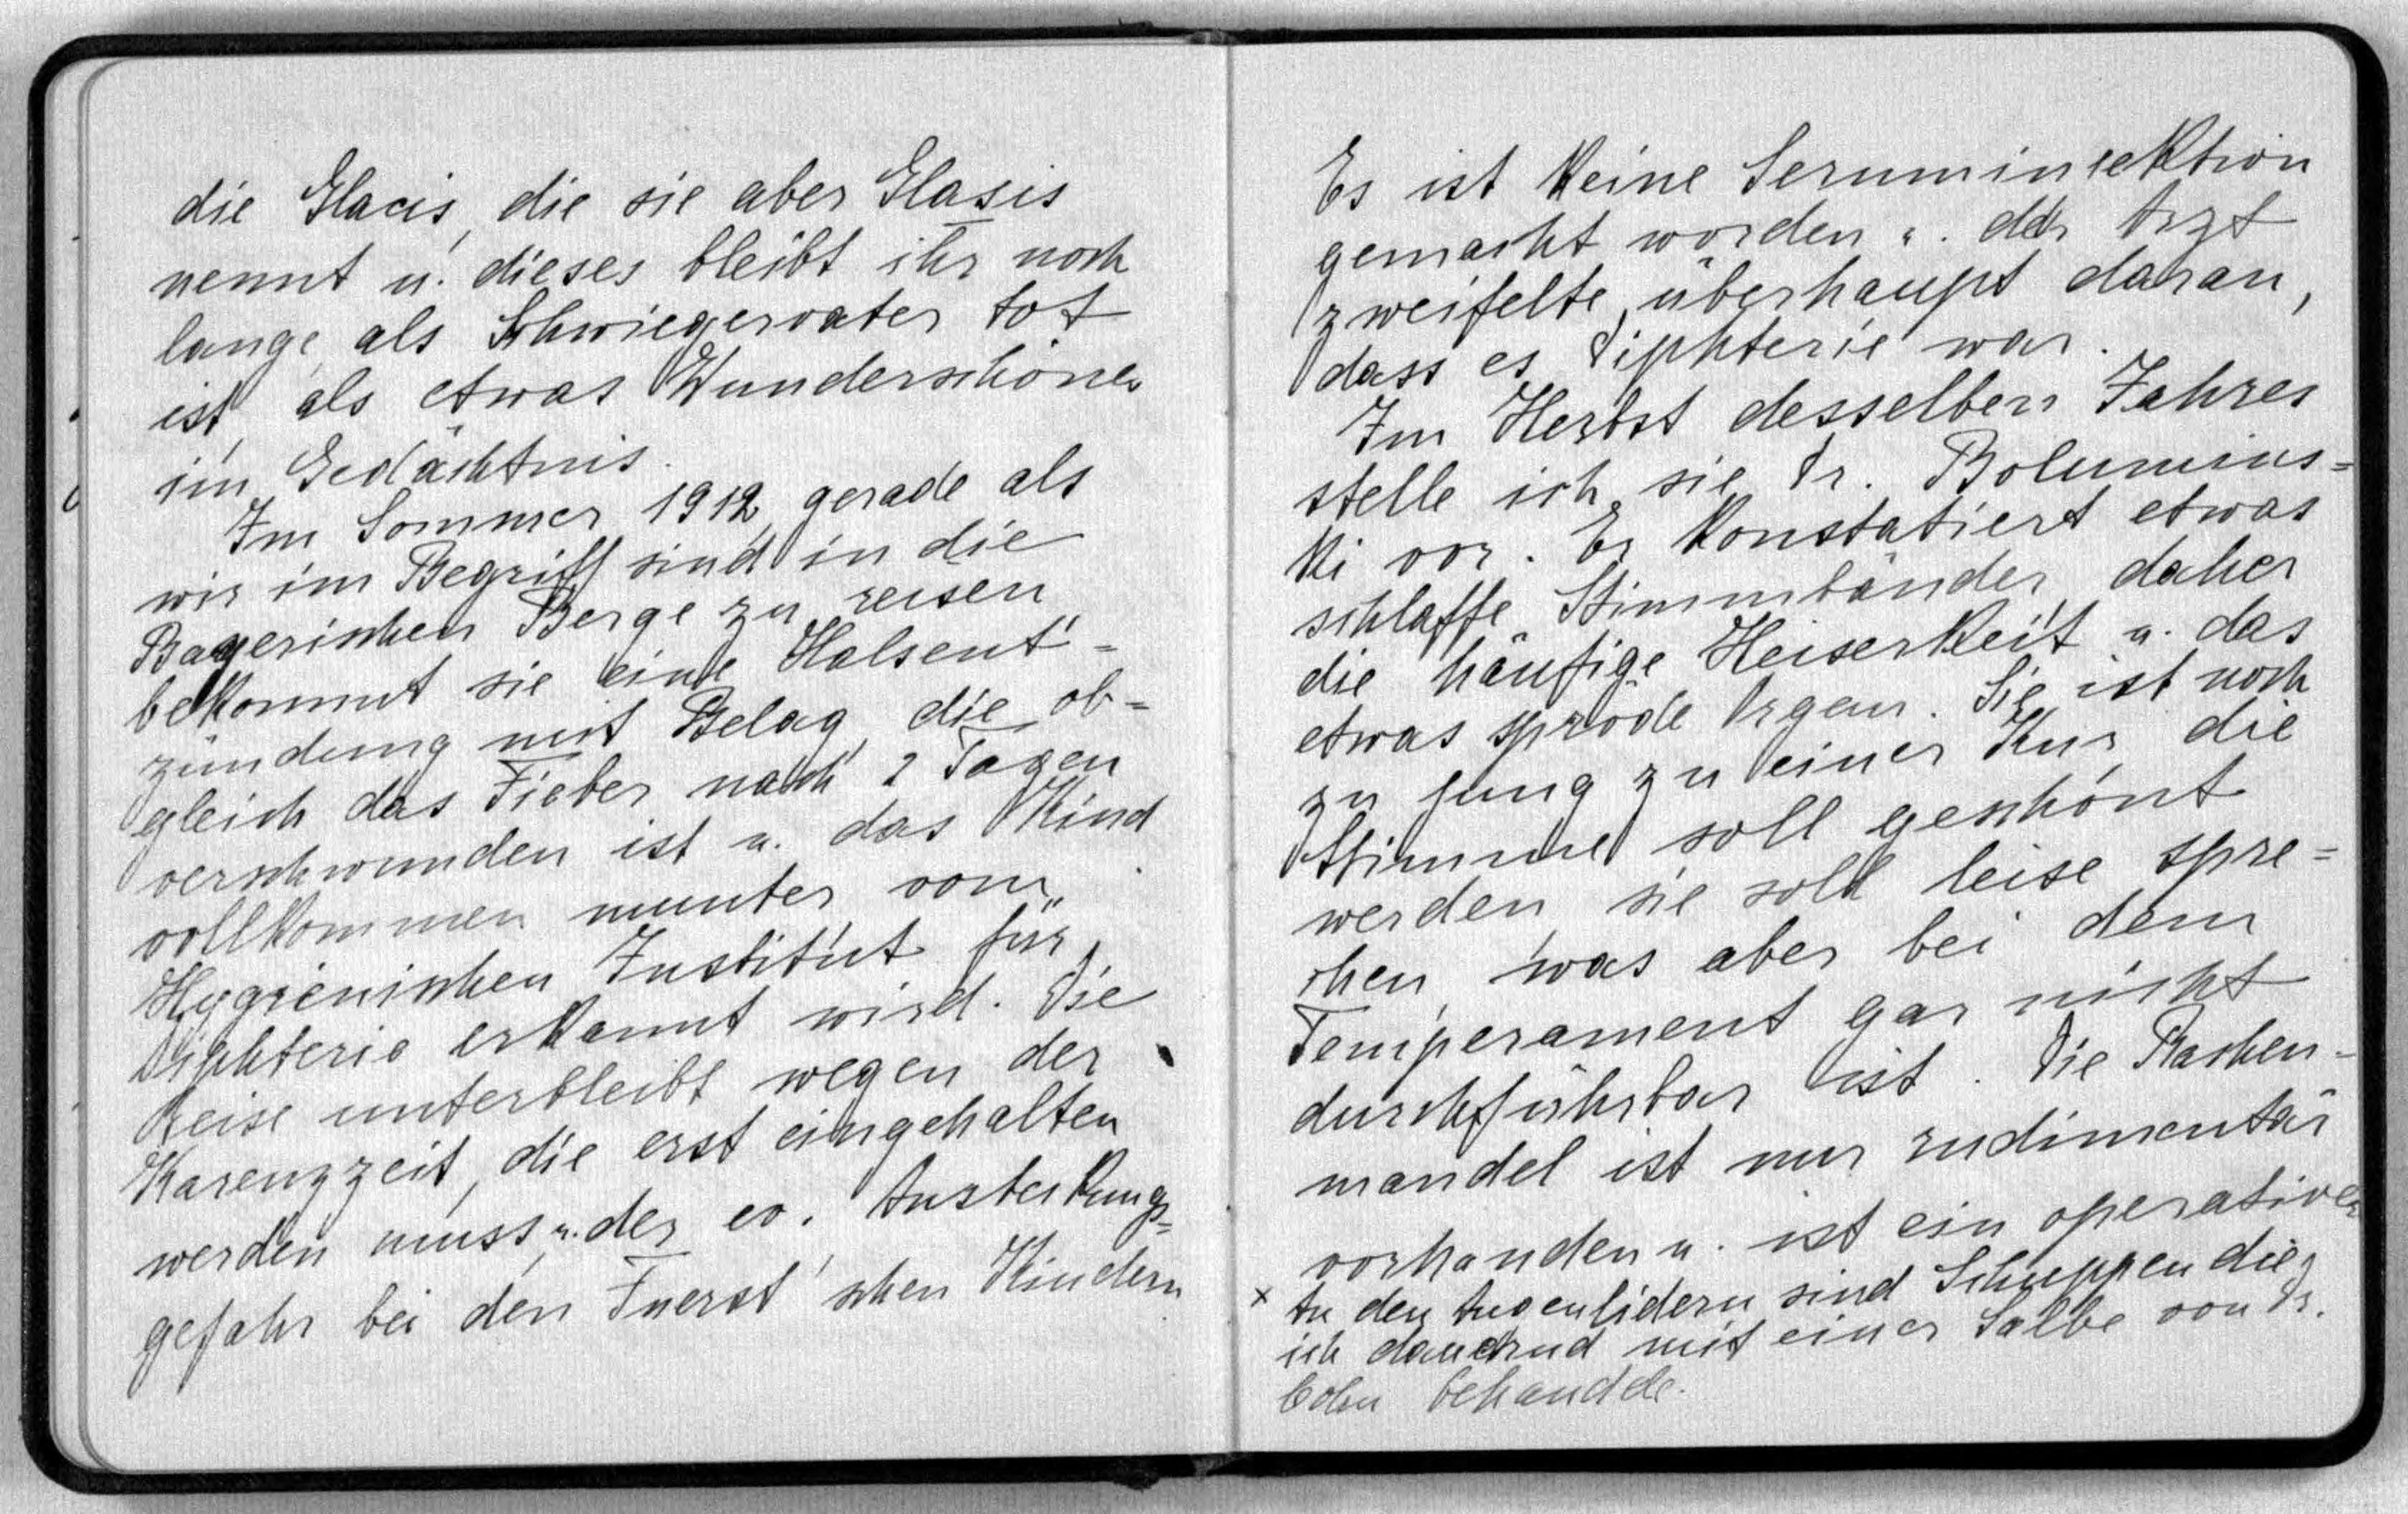 die Glacis, die sie aber Glasis
nennt u. dieses bleibt ihr noch
lange, als Schwiegervater tot
ist, als etwas Wunderschönes
im Gedächtnis.
Im Sommer 1912, gerade als
wir im Begriff sind in die
Bayerischen Berge zu reisen,
bekommt sie eine Halsent=
zündung mit Belag, die ob=
gleich das Fieber nach 2 Tagen
verschwunden ist u. das Kind
vollkommen munter vom
Hygienischen Institut für
Diphterie erkannt wird. Die
Reise unterbleibt wegen der
Karenzzeit, die erst eingehalten
werden muss u. der ev. Ansteckungs=
gefahr bei den Fuerst'schen Kindern
Es ist keine Seruminjektion
gemacht worden u. der Arzt
zweifelte überhaupt daran,
dass es Diphterie war.
Im Herbst desselben Jahres
stelle ich sie Dr. Bolumins=
ki vor. Er konstatiert etwas
schlaffe Stimmbänder, daher
die häufige Heiserkeit u. das
etwas spröde Organ. Sie ist noch
zu jung zu einer Kur, die
Stimme soll geschont
werden, sie soll leise spre=
chen, was aber bei dem
Temperament gar nicht
durchführbar ist. Die Rachen-
mandel ist nur rudimentär
vorhanden u. ist ein operativer
x An den Augenlidern sind Schuppen die
ich dauernd mit einer Salbe von Dr.
Cohn behandle.